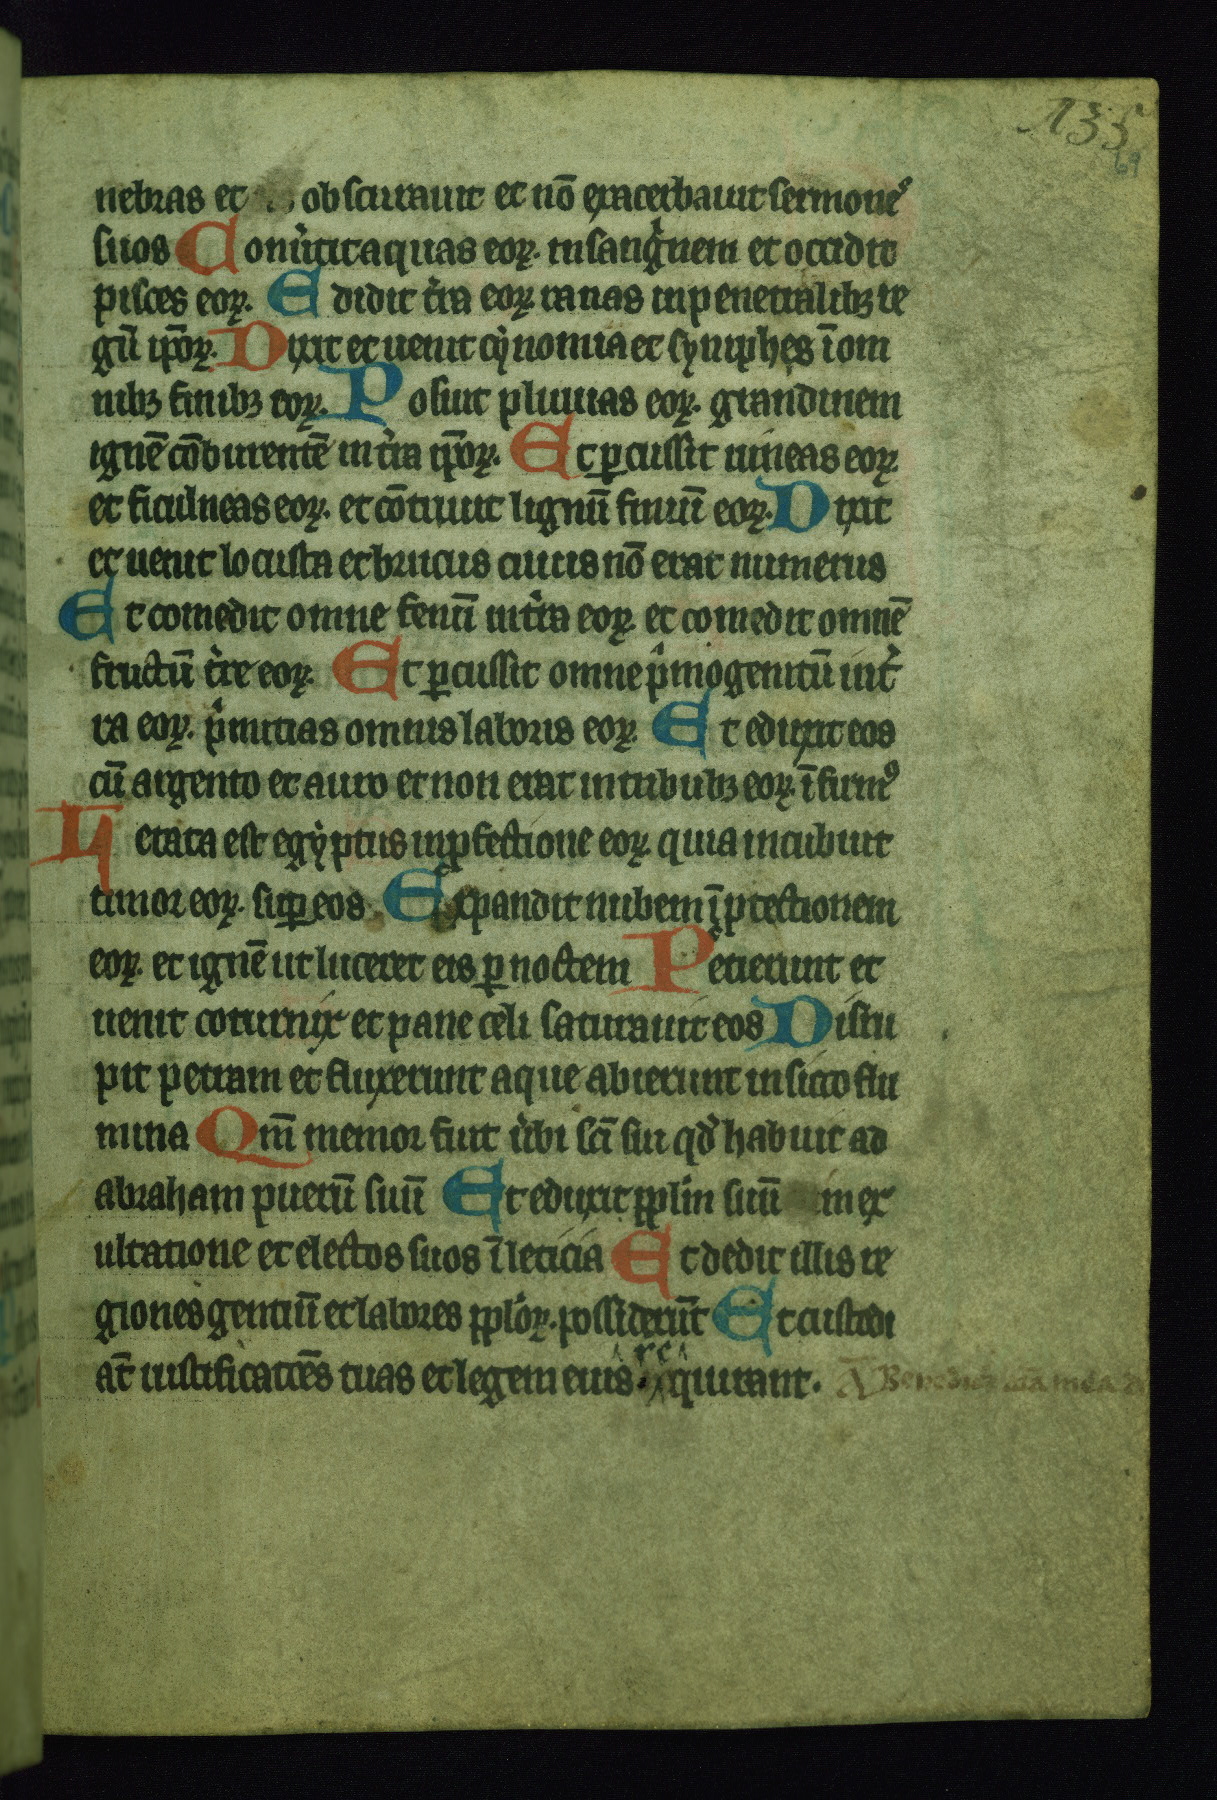 135
69
nebras et obscurauit et nō exacerbauit sermone᷒
suos Conu̾titaquas eoꝝ. insang̾nem et occidit
pisces eoꝝ. Edidit t̾ra eoꝝ ranas inpenetralibꝫ re
gū ip̄oꝝ. Dixit et uenit cẏnomia et sẏniphes ī om
nibꝫ finibꝫ eoꝝ. Posuit pluuias eoꝝ. grandinem
ignē cōburentē in t̾ra ip̄oꝝ. Et ꝑcussit uineas eoꝝ.
et ficulneas eoꝝ. et cōtriuit lignū finiū eoꝝ. Dixit
et uenit locusta et brucus cuius nō erat numerus
Et comedit omne fenū in t̾ra eoꝝ et comedit omnē
fructū t̾re eoꝝ. Et ꝑcussit omne p̾mogenitū in t̾
ra eoꝝ. p̾mitias omnis laboris eoꝝ. Et eduxit eos
cū argento et auro et non erat in tribubꝫ eoꝝ. ī firm᷒
Letata est egẏptus inꝓfectione eoꝝ quia incubuit
timor eoꝝ. suꝑ eos Expandit nubem ī ꝓtectionem
eoꝝ. et ignē ut luceret eis ꝑ noctem Petierunt et
uenit coturnix et pane celi saturauit eos Disru
pit petram et fluxerunt aque abierunt in sicco flu
mina Qm̄ memor fuit u̾bi sc̄i sui qd̾ habuit ad
abraham puerū suū Et eduxit pplm̄ suū in ex
ultatione et electos suos ī leticia Et dedit illis re
giones gentiū et labores pploꝝ. possiderūt Et custodi
āt iustificatiōes tuas et legem eius. re quirant. Benedic aīa mea